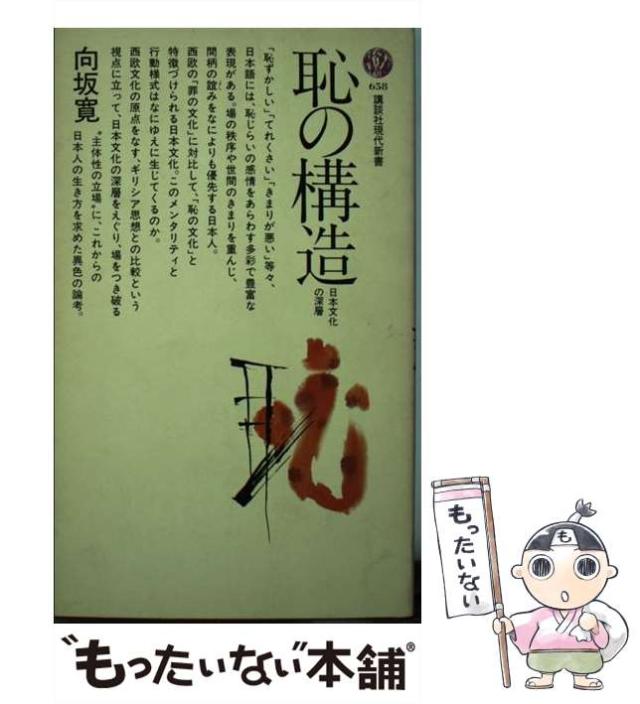 658
講談社現代新書
恥の構造
日本文化
の深層
「恥ずかしい」「てれくさい」「きまりが悪い」等々、
日本語には、恥じらいの感情をあらわす多彩で豊富な
表現がある。場の秩序や世間のきまりを重んじ、
間柄の誼みをなによりも優先する日本人。
西欧の「罪の文化」に対比して、「恥の文化」と
特徴づけられる日本文化。このメンタリティと
行動様式はなにゆえに生じてくるのか。
西欧文化の原点をなす、ギリシア思想との比較という
視点に立って、日本文化の深層をえぐり、場をつき破る
“主体性の立場”に、これからの
日本人の生き方を求めた異色の論考。
向坂寛
恥
“もったいない”本舗®
もったいない
も